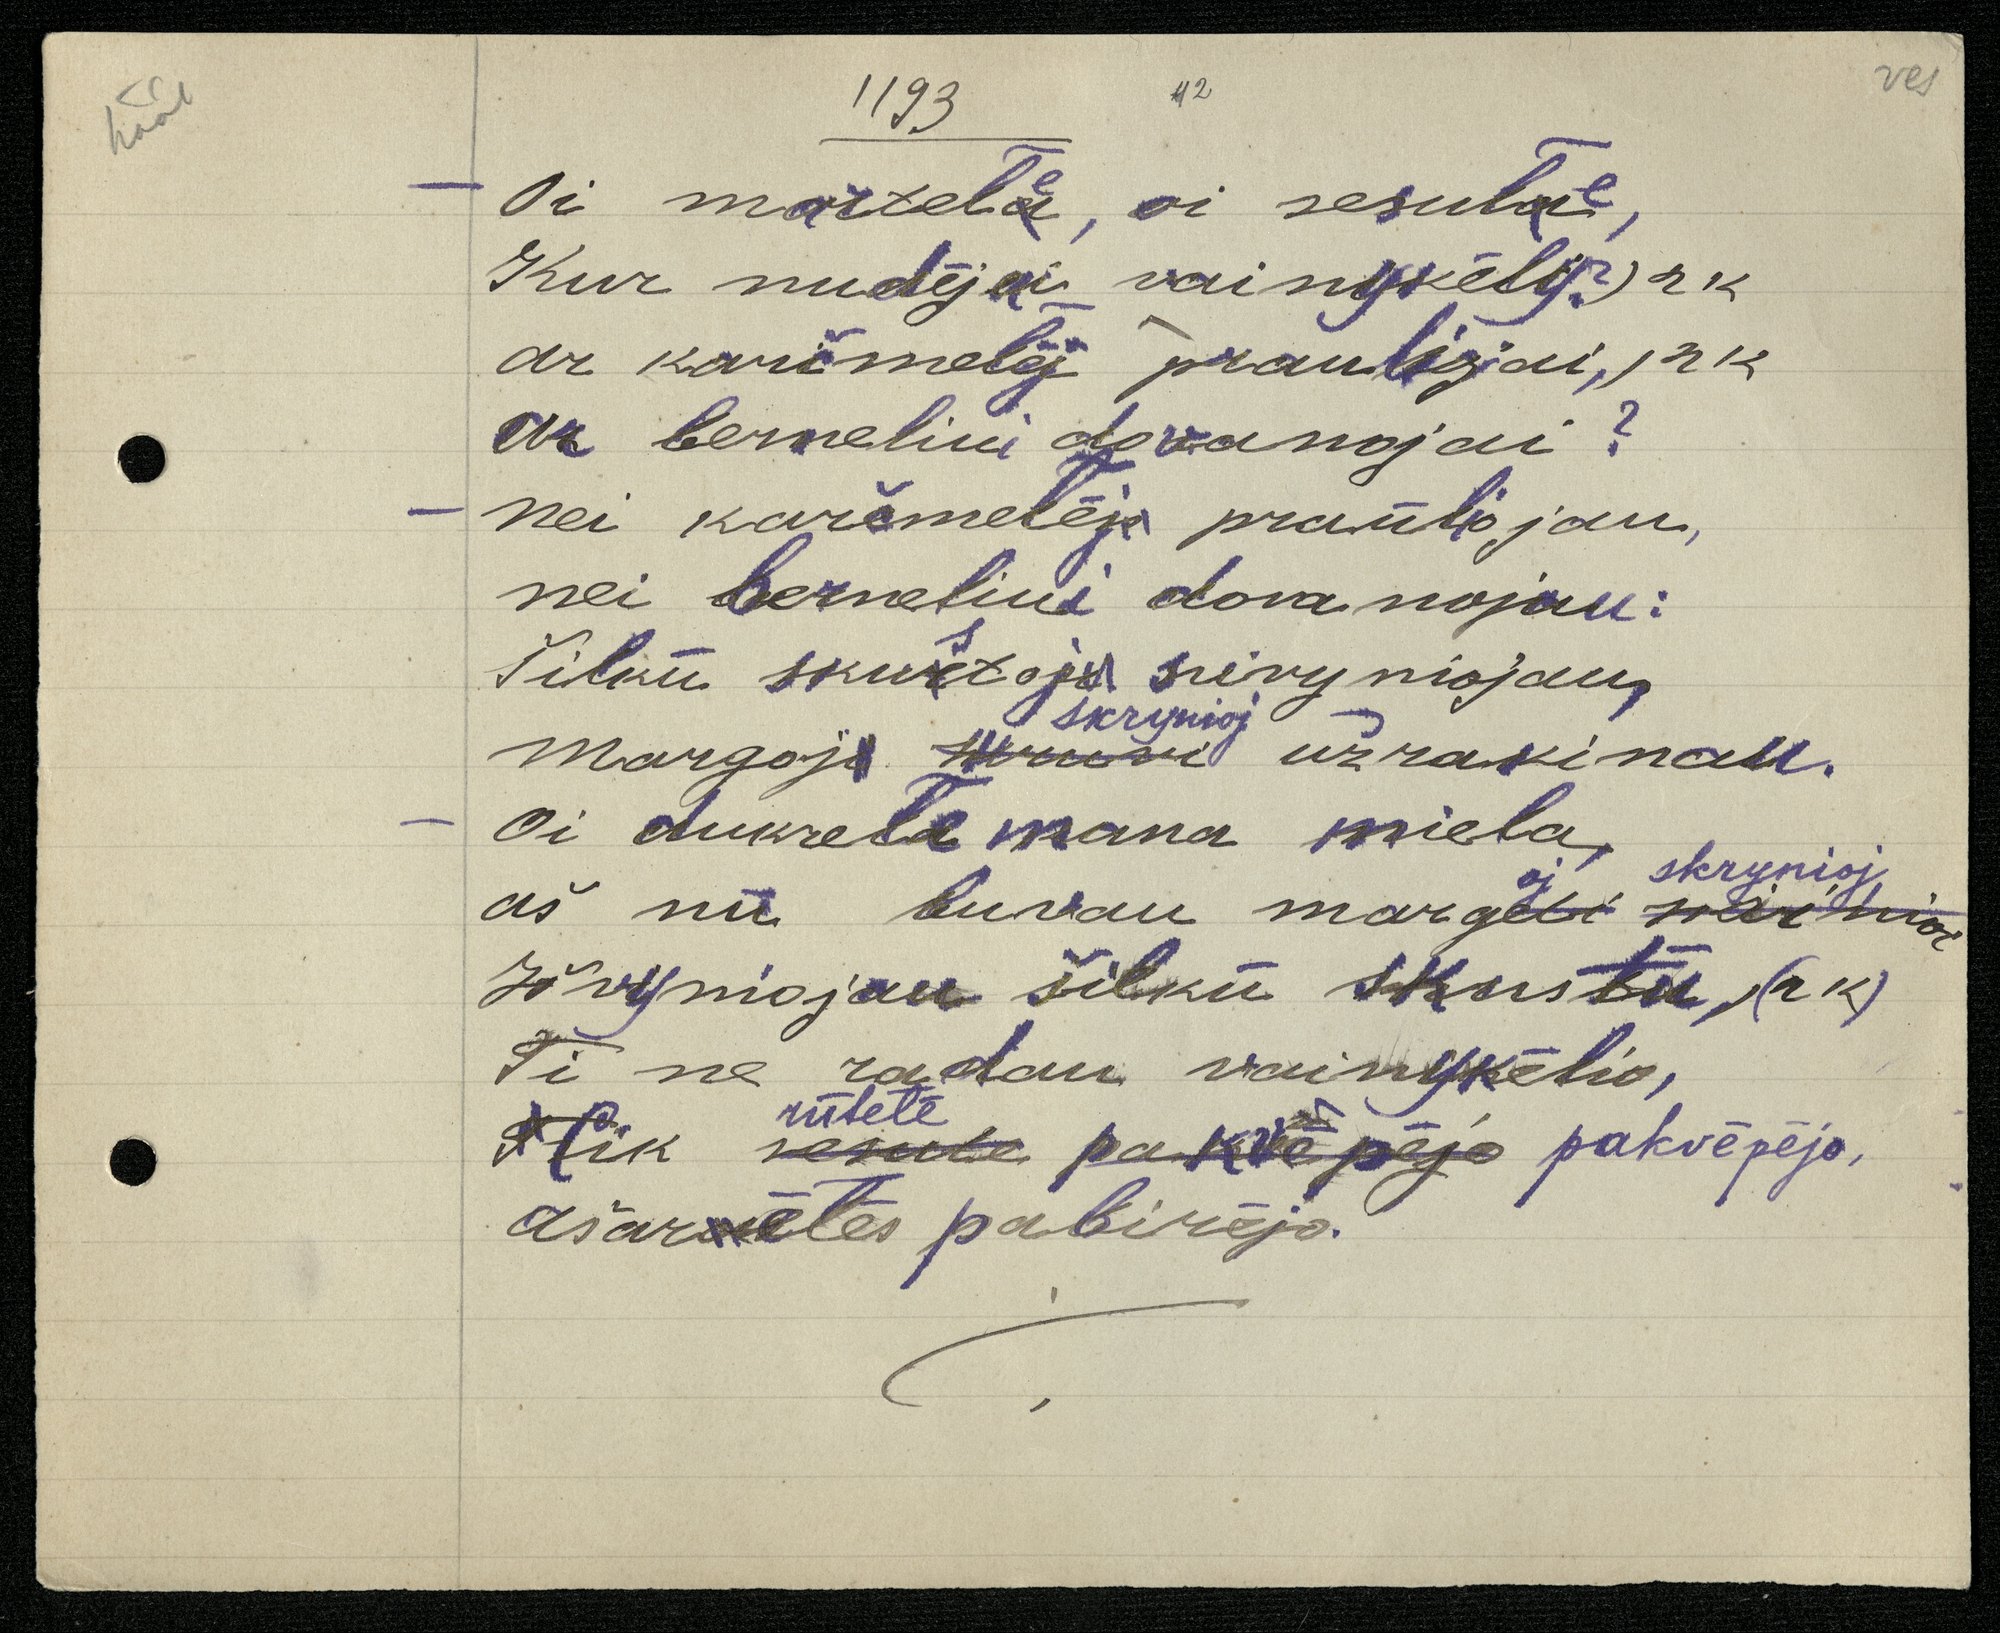 1193 42 ves
– Oi martele, oi sesute,
Kur nudėjai vainykėlį? ) 2 k
ar karčmelėj praūliojai, ) 2 k
Ar berneliui dovanojai?
– Nei karčmelėj praūliojau,
nei berneliui dovanojau:
Šilkū skustoj suvyniojau,
margoj skrynioj užrakinau.
– Oi dukrele mana miela,
aš nū buvau margoj skrynioj
Išvyniojau šilkū skustū, (2 k)
Ti ne radau vainykėlio,
Tik rūtelė pakvėpėjo,
ašarėlės pabirėjo.